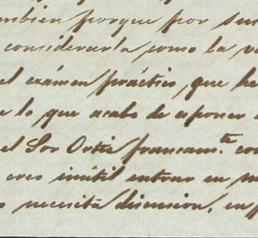 mbien porque por su
considerarla como la v
el exámen práctico, que he
e lo que acabo de esponer
el Sor Ortiz francam.te con
creo inútil entrar en m
necesita discusion, en